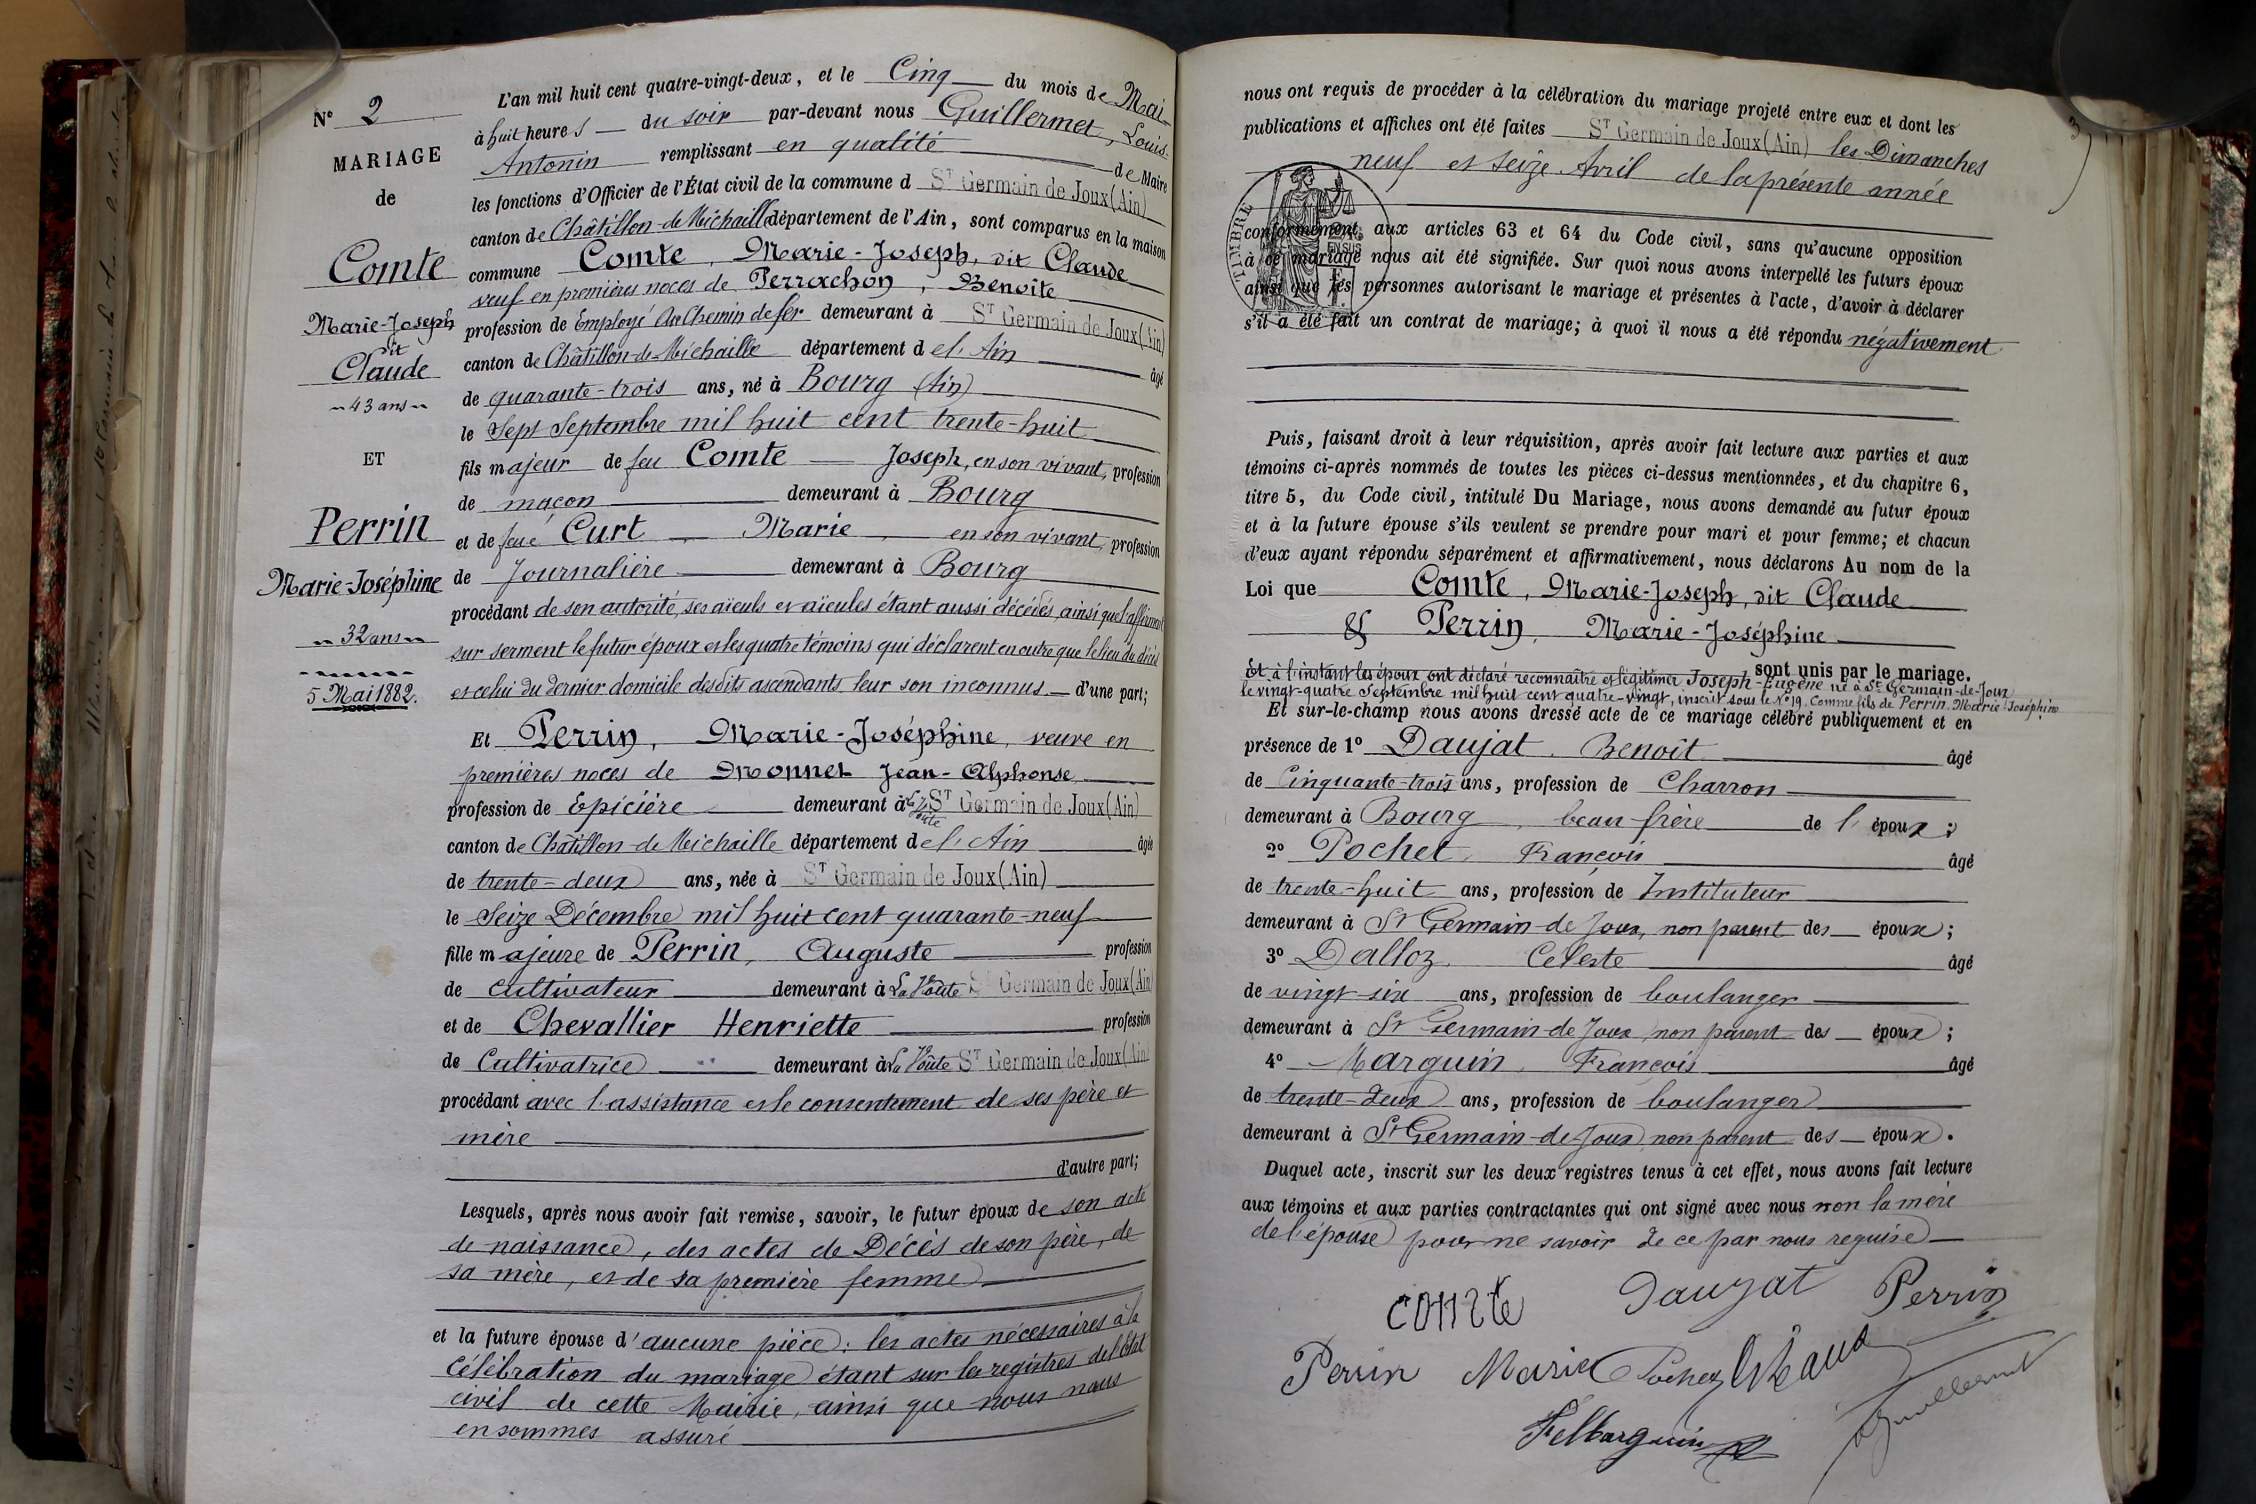 N° 2
MARIAGE
de
Comte
Marie-Joseph
dit
Claude
43 ans
ET
Perrin
Marie-Joséphine
32 ans
5 Mai 1882.
L'an mil huit cent quatre-vingt-deux, et le Cinq du mois de Mai
à huit heures du soir par-devant nous Guillermet, Louis-
Antonin remplissant en qualité de Maire
les fonctions d'Officier de l'État civil de la commune d St Germain de Joux (Ain)
canton de Châtillon-de-Michaille département de l'Ain, sont comparus en la maison
commune Comte, Marie-Joseph, dit Claude
veuf en premières noces de Perrachon, Benoite
profession de Employé au Chemin de fer demeurant à St Germain de Joux (Ain)
canton de Châtillon-de-Michaille département de l'Ain âgé
de quarante-trois ans, né à Bourg (Ain)
le Sept Septembre mil huit cent trente-huit
fils majeur de feu Comte Joseph, en son vivant, profession
de maçon demeurant à Bourg
et de feue Curt, Marie, en son vivant, profession
de Journalière demeurant à Bourg
procédant de son autorité, ses aïeuls et aïeules étant aussi décédés, ainsi que l'affirment
sur serment le futur époux et les quatre témoins qui déclarent en outre que le lieu du décès
et celui du dernier domicile desdits ascendants leur son inconnus d'une part;
Et Perrin, Marie-Joséphine, veuve en
premières noces de Monnet Jean-Alphonse
profession de Epicière demeurant à La Voûte St Germain de Joux (Ain)
canton de Châtillon-de-Michaille département de l'Ain âgée
de trente-deux ans, née à St Germain de Joux (Ain)
le Seize Décembre mil huit cent quarante-neuf
fille majeure de Perrin, Auguste profession
de cultivateur demeurant à La Voûte St Germain de Joux (Ain)
et de Chevallier Henriette profession
de Cultivatrice demeurant à La Voûte St Germain de Joux (Ain)
procédant avec l'assistance et le consentement de ses père et
mère
d'autre part;
Lesquels, après nous avoir fait remise, savoir, le futur époux de son acte
de naissance, des actes de Décès de son père, de
sa mère, et de sa première femme
et la future épouse d'aucune pièce: les actes nécessaires à la
célébration du mariage étant sur les registres de l'état
civil de cette Mairie, ainsi que nous nous
en sommes assuré
3
nous ont requis de procéder à la célébration du mariage projeté entre eux et dont les
publications et affiches ont été faites St Germain de Joux (Ain) les Dimanches
neuf et seize Avril de la présente année
TIMBRE
EN SUS
conformément aux articles 63 et 64 du Code civil, sans qu'aucune opposition
à ce mariage nous ait été signifiée. Sur quoi nous avons interpellé les futurs époux
ainsi que les personnes autorisant le mariage et présentes à l'acte, d'avoir à déclarer
s'il a été fait un contrat de mariage; à quoi il nous a été répondu négativement
Puis, faisant droit à leur réquisition, après avoir fait lecture aux parties et aux
témoins ci-après nommés de toutes les pièces ci-dessus mentionnées, et du chapitre 6,
titre 5, du Code civil, intitulé Du Mariage, nous avons demandé au futur époux
et à la future épouse s'ils veulent se prendre pour mari et pour femme; et chacun
d'eux ayant répondu séparément et affirmativement, nous déclarons Au nom de la
Loi que Comte, Marie-Joseph, dit Claude
& Perrin, Marie-Joséphine
sont unis par le mariage.
Et à l'instant les époux ont déclaré reconnaître et légitimer Joseph-Eugène né à St Germain-de-Joux
le vingt-quatre Septembre mil huit cent quatre-vingt, inscrit sous le N° 19, comme fils de Perrin Marie-Joséphine
Et sur-le-champ nous avons dressé acte de ce mariage célébré publiquement et en
présence de 1° Daujat, Benoît âgé
de Cinquante-trois ans, profession de Charron
demeurant à Bourg, beau-frère de l'époux;
2° Pochet, François âgé
de trente-huit ans, profession de Instituteur
demeurant à St Germain-de-Joux, non parent des époux;
3° Dalloz, Céleste âgé
de vingt-six ans, profession de boulanger
demeurant à St Germain-de-Joux non parent des époux;
4° Marguin, François âgé
de trente-deux ans, profession de boulanger
demeurant à St Germain-de-Joux non parent des époux.
Duquel acte, inscrit sur les deux registres tenus à cet effet, nous avons fait lecture
aux témoins et aux parties contractantes qui ont signé avec nous non la mère
de l'épouse pour ne savoir de ce par nous requise
comte Daujat Perrin
Perrin Marie Pochet
F Marguin Guillermet